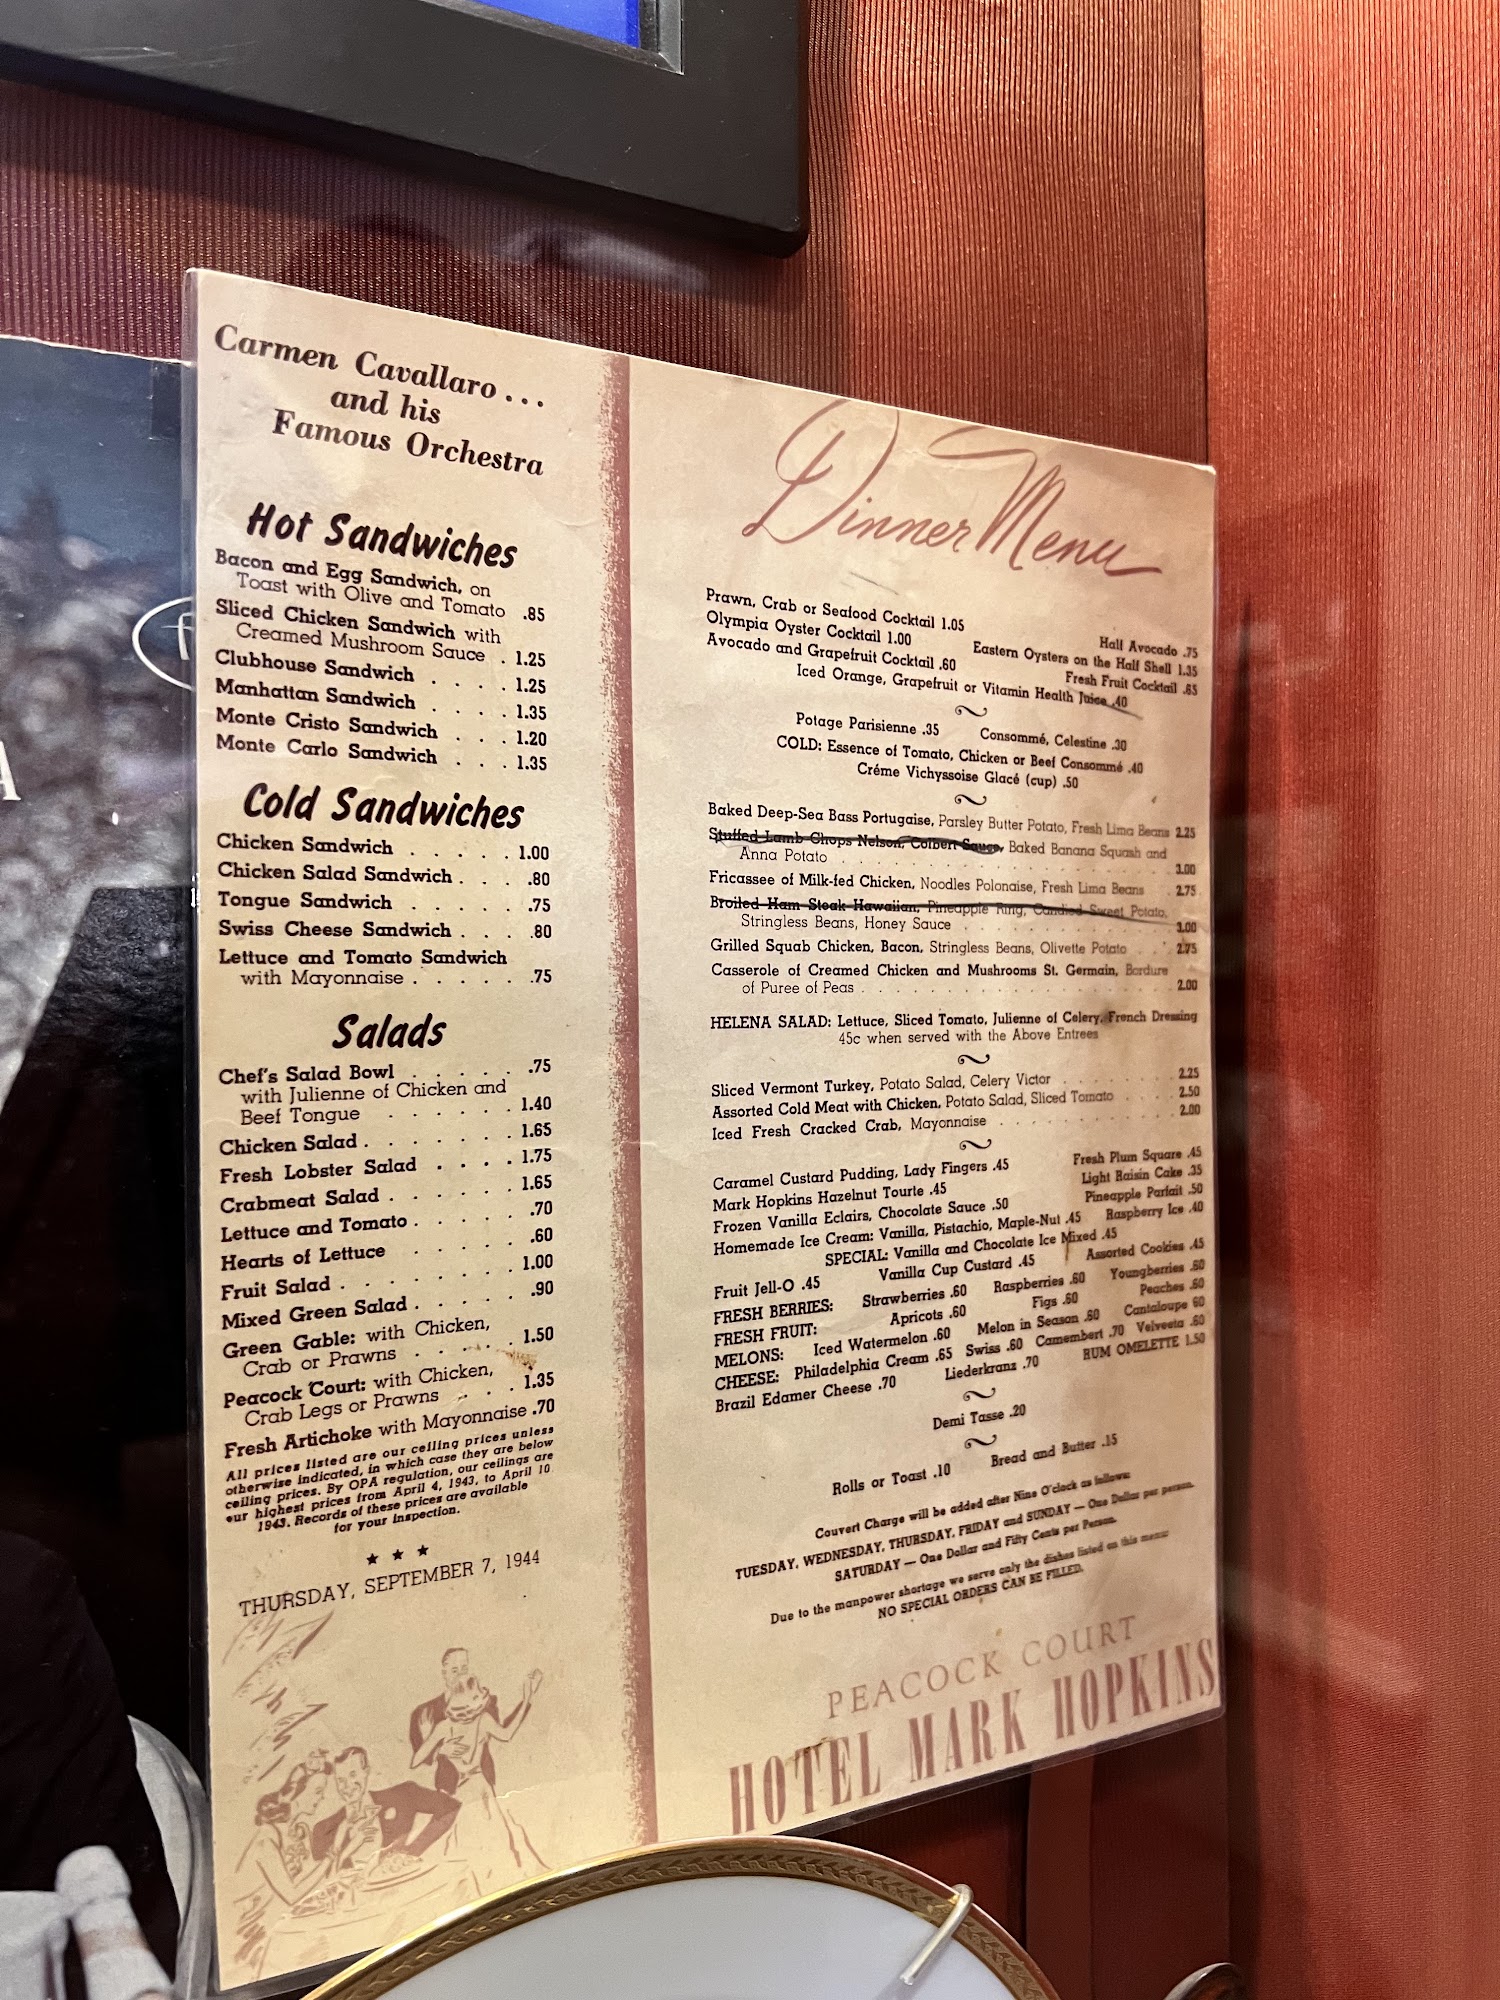 Carmen Cavallaro ...
and his
Famous Orchestra
Hot Sandwiches
Bacon and Egg Sandwich, on
Toast with Olive and Tomato .85
Sliced Chicken Sandwich with
Creamed Mushroom Sauce . 1.25
Clubhouse Sandwich . . . . 1.25
Manhattan Sandwich . . . . 1.35
Monte Cristo Sandwich . . . 1.20
Monte Carlo Sandwich . . . 1.35
Cold Sandwiches
Chicken Sandwich . . . . . 1.00
Chicken Salad Sandwich . . . .80
Tongue Sandwich . . . . . .75
Swiss Cheese Sandwich . . . .80
Lettuce and Tomato Sandwich
with Mayonnaise . . . . . .75
Salads
Chef's Salad Bowl . . . . . .75
with Julienne of Chicken and
Beef Tongue . . . . . . 1.40
Chicken Salad . . . . . . . 1.65
Fresh Lobster Salad . . . . 1.75
Crabmeat Salad . . . . . . 1.65
Lettuce and Tomato . . . . . .70
Hearts of Lettuce . . . . . .60
Fruit Salad . . . . . . . . 1.00
Mixed Green Salad . . . . . .90
Green Gable: with Chicken,
Crab or Prawns . . . . . 1.50
Peacock Court: with Chicken,
Crab Legs or Prawns . . . 1.35
Fresh Artichoke with Mayonnaise .70
All prices listed are our ceiling prices unless
otherwise indicated, in which case they are below
ceiling prices. By OPA regulation, our ceilings are
our highest prices from April 4, 1943, to April 10
1943. Records of these prices are available
for your inspection.
★ ★ ★
THURSDAY, SEPTEMBER 7, 1944
Dinner Menu
Prawn, Crab or Seafood Cocktail 1.05
Half Avocado .75
Olympia Oyster Cocktail 1.00 Eastern Oysters on the Half Shell 1.35
Avocado and Grapefruit Cocktail .60 Fresh Fruit Cocktail .65
Iced Orange, Grapefruit or Vitamin Health Juice .40
Potage Parisienne .35 Consommé, Celestine .30
COLD: Essence of Tomato, Chicken or Beef Consommé .40
Créme Vichyssoise Glacé (cup) .50
Baked Deep-Sea Bass Portugaise, Parsley Butter Potato, Fresh Lima Beans 2.25
Stuffed Lamb Chops Nelson, Colbert Sauce, Baked Banana Squash and
Anna Potato . . . . . . . . . . . 3.00
Fricassee of Milk-fed Chicken, Noodles Polonaise, Fresh Lima Beans 2.75
Broiled Ham Steak Hawaiian, Pineapple Ring, Candied Sweet Potato,
Stringless Beans, Honey Sauce . . . . . . . . 3.00
Grilled Squab Chicken, Bacon, Stringless Beans, Olivette Potato . . . 2.75
Casserole of Creamed Chicken and Mushrooms St. Germain, Bordure
of Puree of Peas . . . . . . . . . . . 2.00
HELENA SALAD: Lettuce, Sliced Tomato, Julienne of Celery, French Dressing
45c when served with the Above Entrees
Sliced Vermont Turkey, Potato Salad, Celery Victor . . . . . . 2.25
Assorted Cold Meat with Chicken, Potato Salad, Sliced Tomato . . . . 2.50
Iced Fresh Cracked Crab, Mayonnaise . . . . . . . . . 2.00
Caramel Custard Pudding, Lady Fingers .45 Fresh Plum Square .45
Mark Hopkins Hazelnut Tourte .45 Light Raisin Cake .35
Frozen Vanilla Eclairs, Chocolate Sauce .50 Pineapple Parfait .50
Homemade Ice Cream: Vanilla, Pistachio, Maple-Nut .45 Raspberry Ice .40
SPECIAL: Vanilla and Chocolate Ice Mixed .45
Fruit Jell-O .45 Vanilla Cup Custard .45 Assorted Cookies .45
FRESH BERRIES: Strawberries .60 Raspberries .60 Youngberries .60
FRESH FRUIT: Apricots .60 Figs .60 Peaches .60
MELONS: Iced Watermelon .60 Melon in Season .60 Cantaloupe 60
CHEESE: Philadelphia Cream .65 Swiss .60 Camembert .70 Velveeta .60
Brazil Edamer Cheese .70 Liederkranz .70 RUM OMELETTE 1.50
Demi Tasse .20
Rolls or Toast .10 Bread and Butter .15
Couvert Charge will be added after Nine O'clock as follows:
TUESDAY, WEDNESDAY, THURSDAY, FRIDAY and SUNDAY — One Dollar per person.
SATURDAY — One Dollar and Fifty Cents per Person.
Due to the manpower shortage we serve only the dishes listed on this menu:
NO SPECIAL ORDERS CAN BE FILLED.
PEACOCK COURT
HOTEL MARK HOPKINS